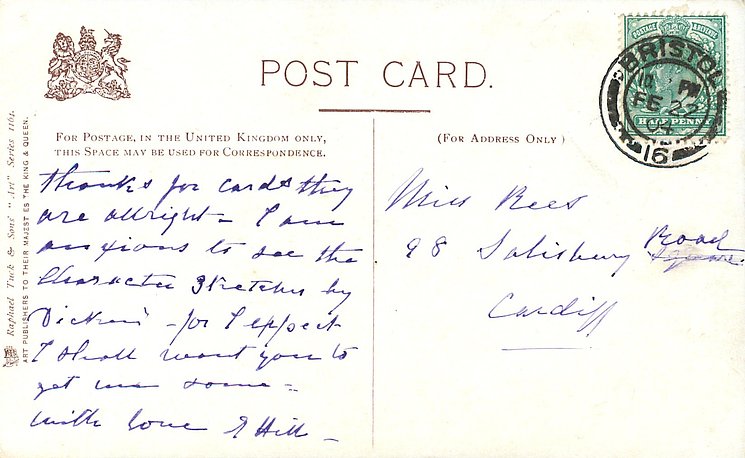 POST CARD.
FOR POSTAGE, IN THE UNITED KINGDOM ONLY,
THIS SPACE MAY BE USED FOR CORRESPONDENCE.
(FOR ADDRESS ONLY)
Thanks for cards they
are allright – I am
anxious to see the
Character Sketches by
Dickens – for I expect
I shall want you to
get me some –
with love E Hill –
Miss Rees
98 Salisbury Road
Square
Cardiff
Raphael Tuck & Sons' "Art" Series 1161.
ART PUBLISHERS TO THEIR MAJESTIES THE KING & QUEEN.
POSTAGE
HALF PENNY
BRISTOL
PM
FE 22
04
16